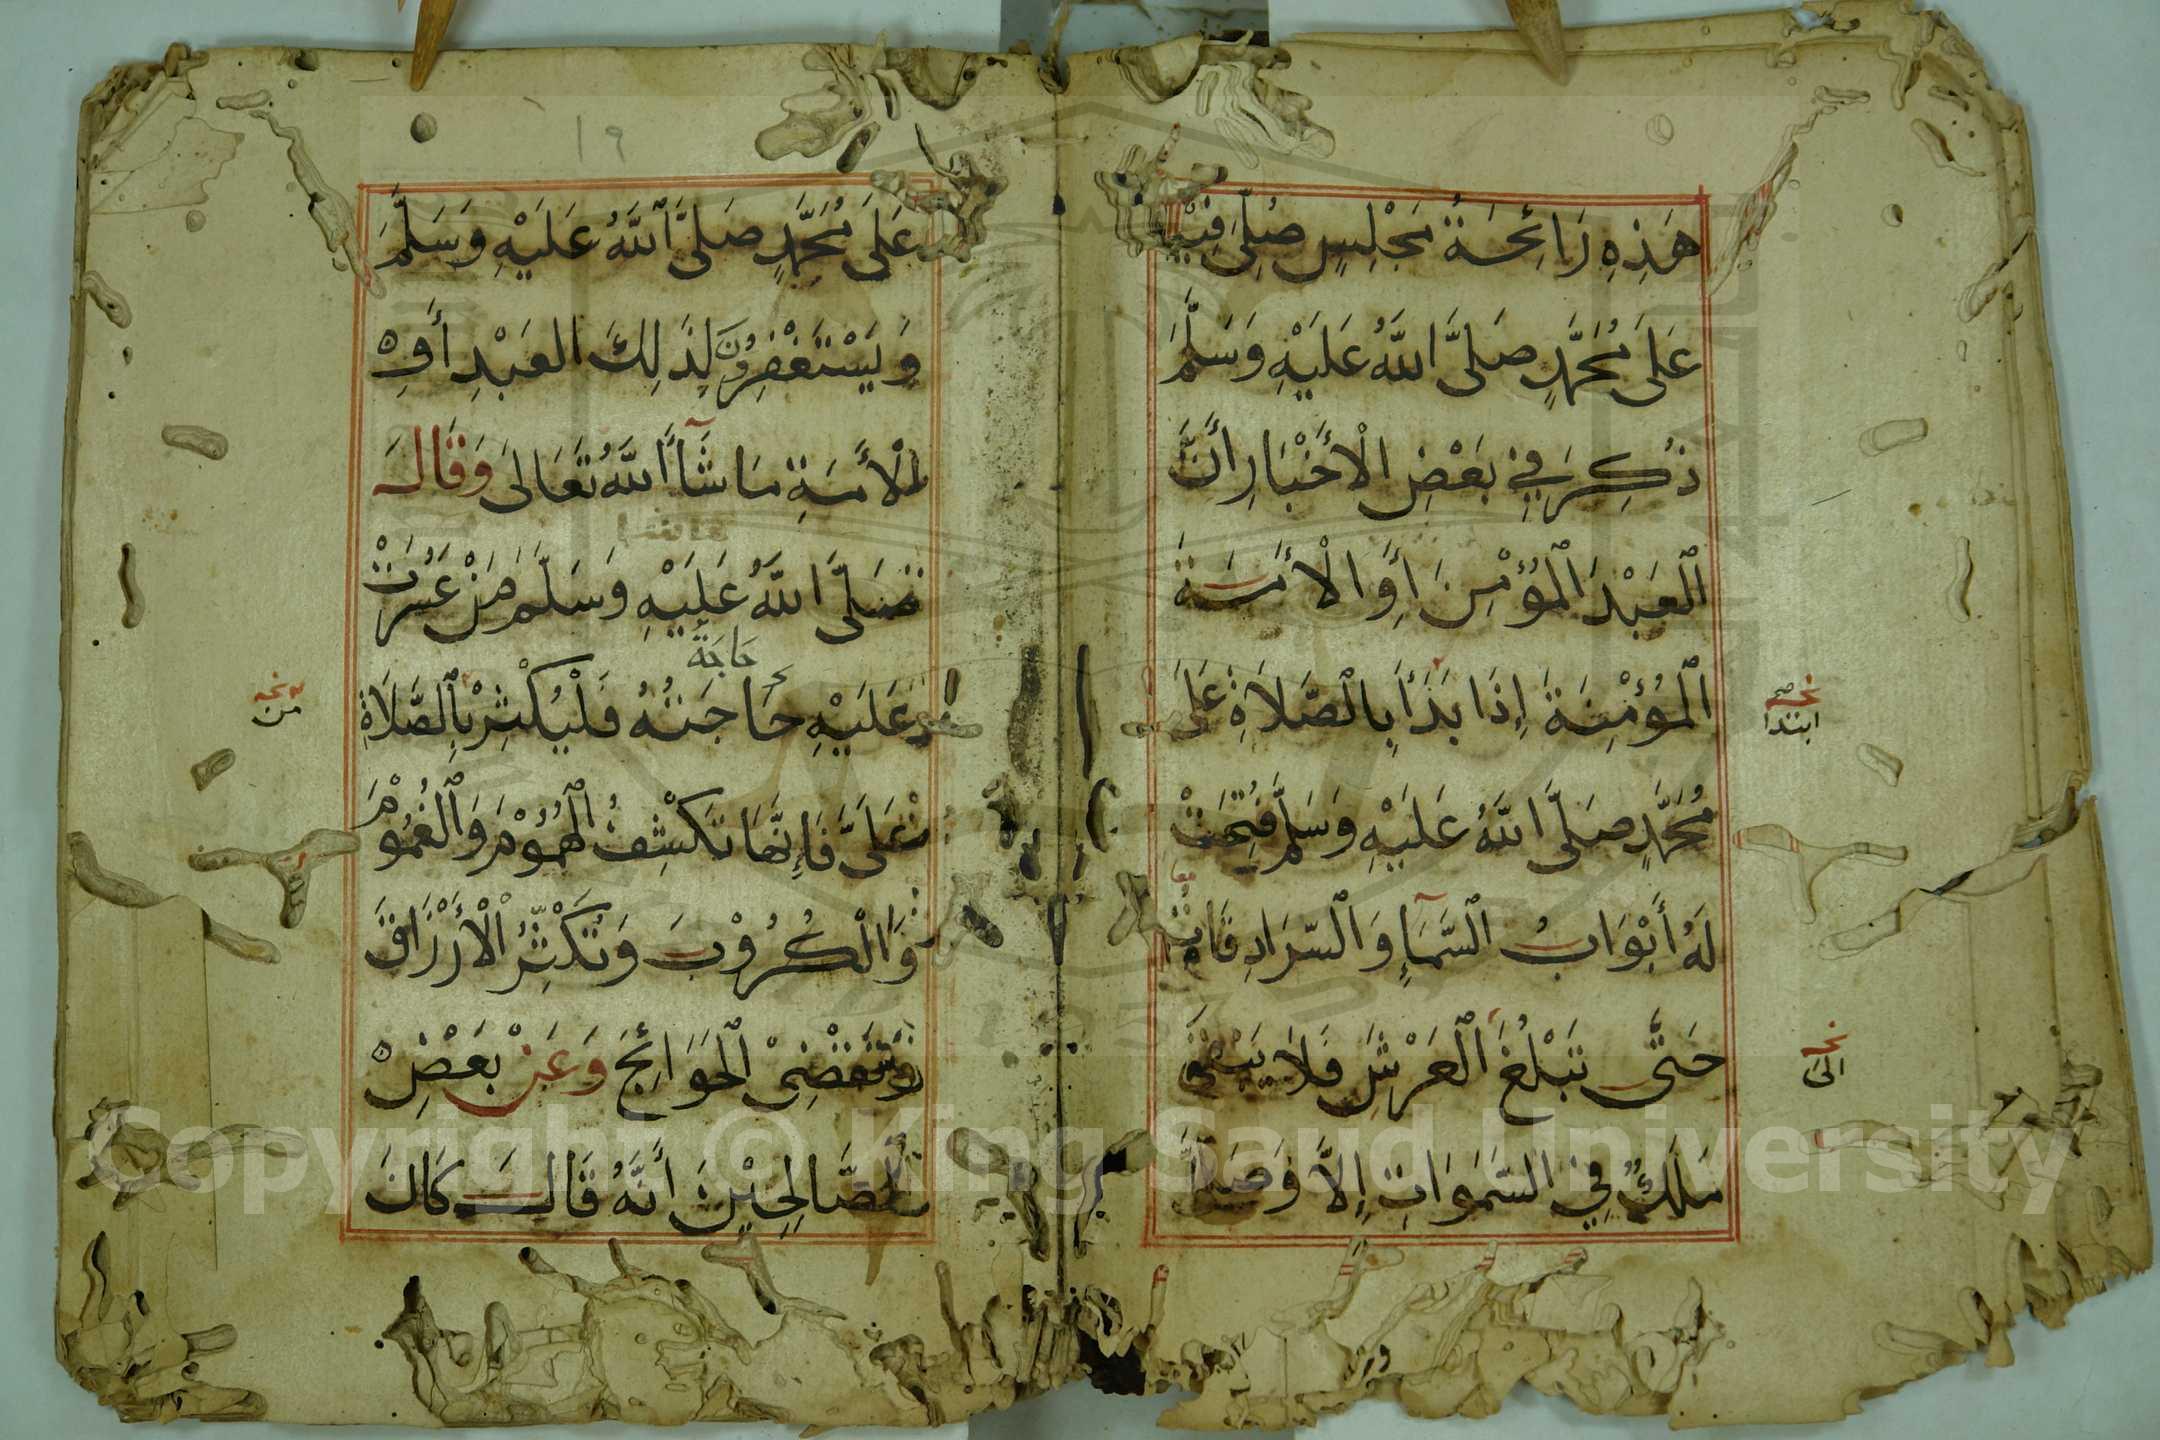 هَذِهِ رَائِحَةُ مَجْلِسٍ صُلِّىَ فِيْهِ
عَلَى مُحَمَّدٍ صَلَّى اللَّهُ عَلَيْهِ وَسَلَّمَ
ذُكِرَ فِي بَعْضِ الْأَخْبَارِ أَنَّ
الْعَبْدَ الْمُؤْمِنَ أَوِ الْأَمَةَ
الْمُؤْمِنَةَ إِذَا بَدَأَ بِالصَّلَاةِ عَلَى
نخه صح
ابتدا
مُحَمَّدٍ صَلَّى اللَّهُ عَلَيْهِ وَسَلَّمَ فُتِحَتْ
لَهُ أَبْوَابُ السَّمَآءِ وَالسُّرَادِقَاتُ
معا
حَتَّى تَبْلُغَ الْعَرْشَ فَلَا يَبْقَى
نخه
الى
مَلَكٌ فِي السَّمَوَاتِ إِلَّا وَصَلَّى
١٩
عَلَى مُحَمَّدٍ صَلَّى اللَّهُ عَلَيْهِ وَسَلَّمَ
وَيَسْتَغْفِرُوْنَ لِذَلِكَ العَبْدِ أَوِ
الْأَمَةِ مَا شَآءَ اللَّهُ تَعَالَى وَقَالَ
صَلَّى اللَّهُ عَلَيْهِ وَسَلَّمَ مَنْ عَسُرَتْ
حَاجَةٌ
عَلَيْهِ حَاجَتُهُ فَلْيُكْثِرْ بِالصَّلَاةِ
نخه
من
عَلَىَّ فَإِنَّهَا تَكْشِفُ الْهُمُوْمَ وَالْغُمُوْمَ
وَالْكُرُوْبَ وَتُكَثِّرُ الْأَرْزَاقَ
وَتَقْضِىْ الْحَوَائِجَ وَعَنْ بَعْضِ
الصَّالِحِيْنَ أَنَّهُ قَالَ كَانَ
Copyright © King Saud University